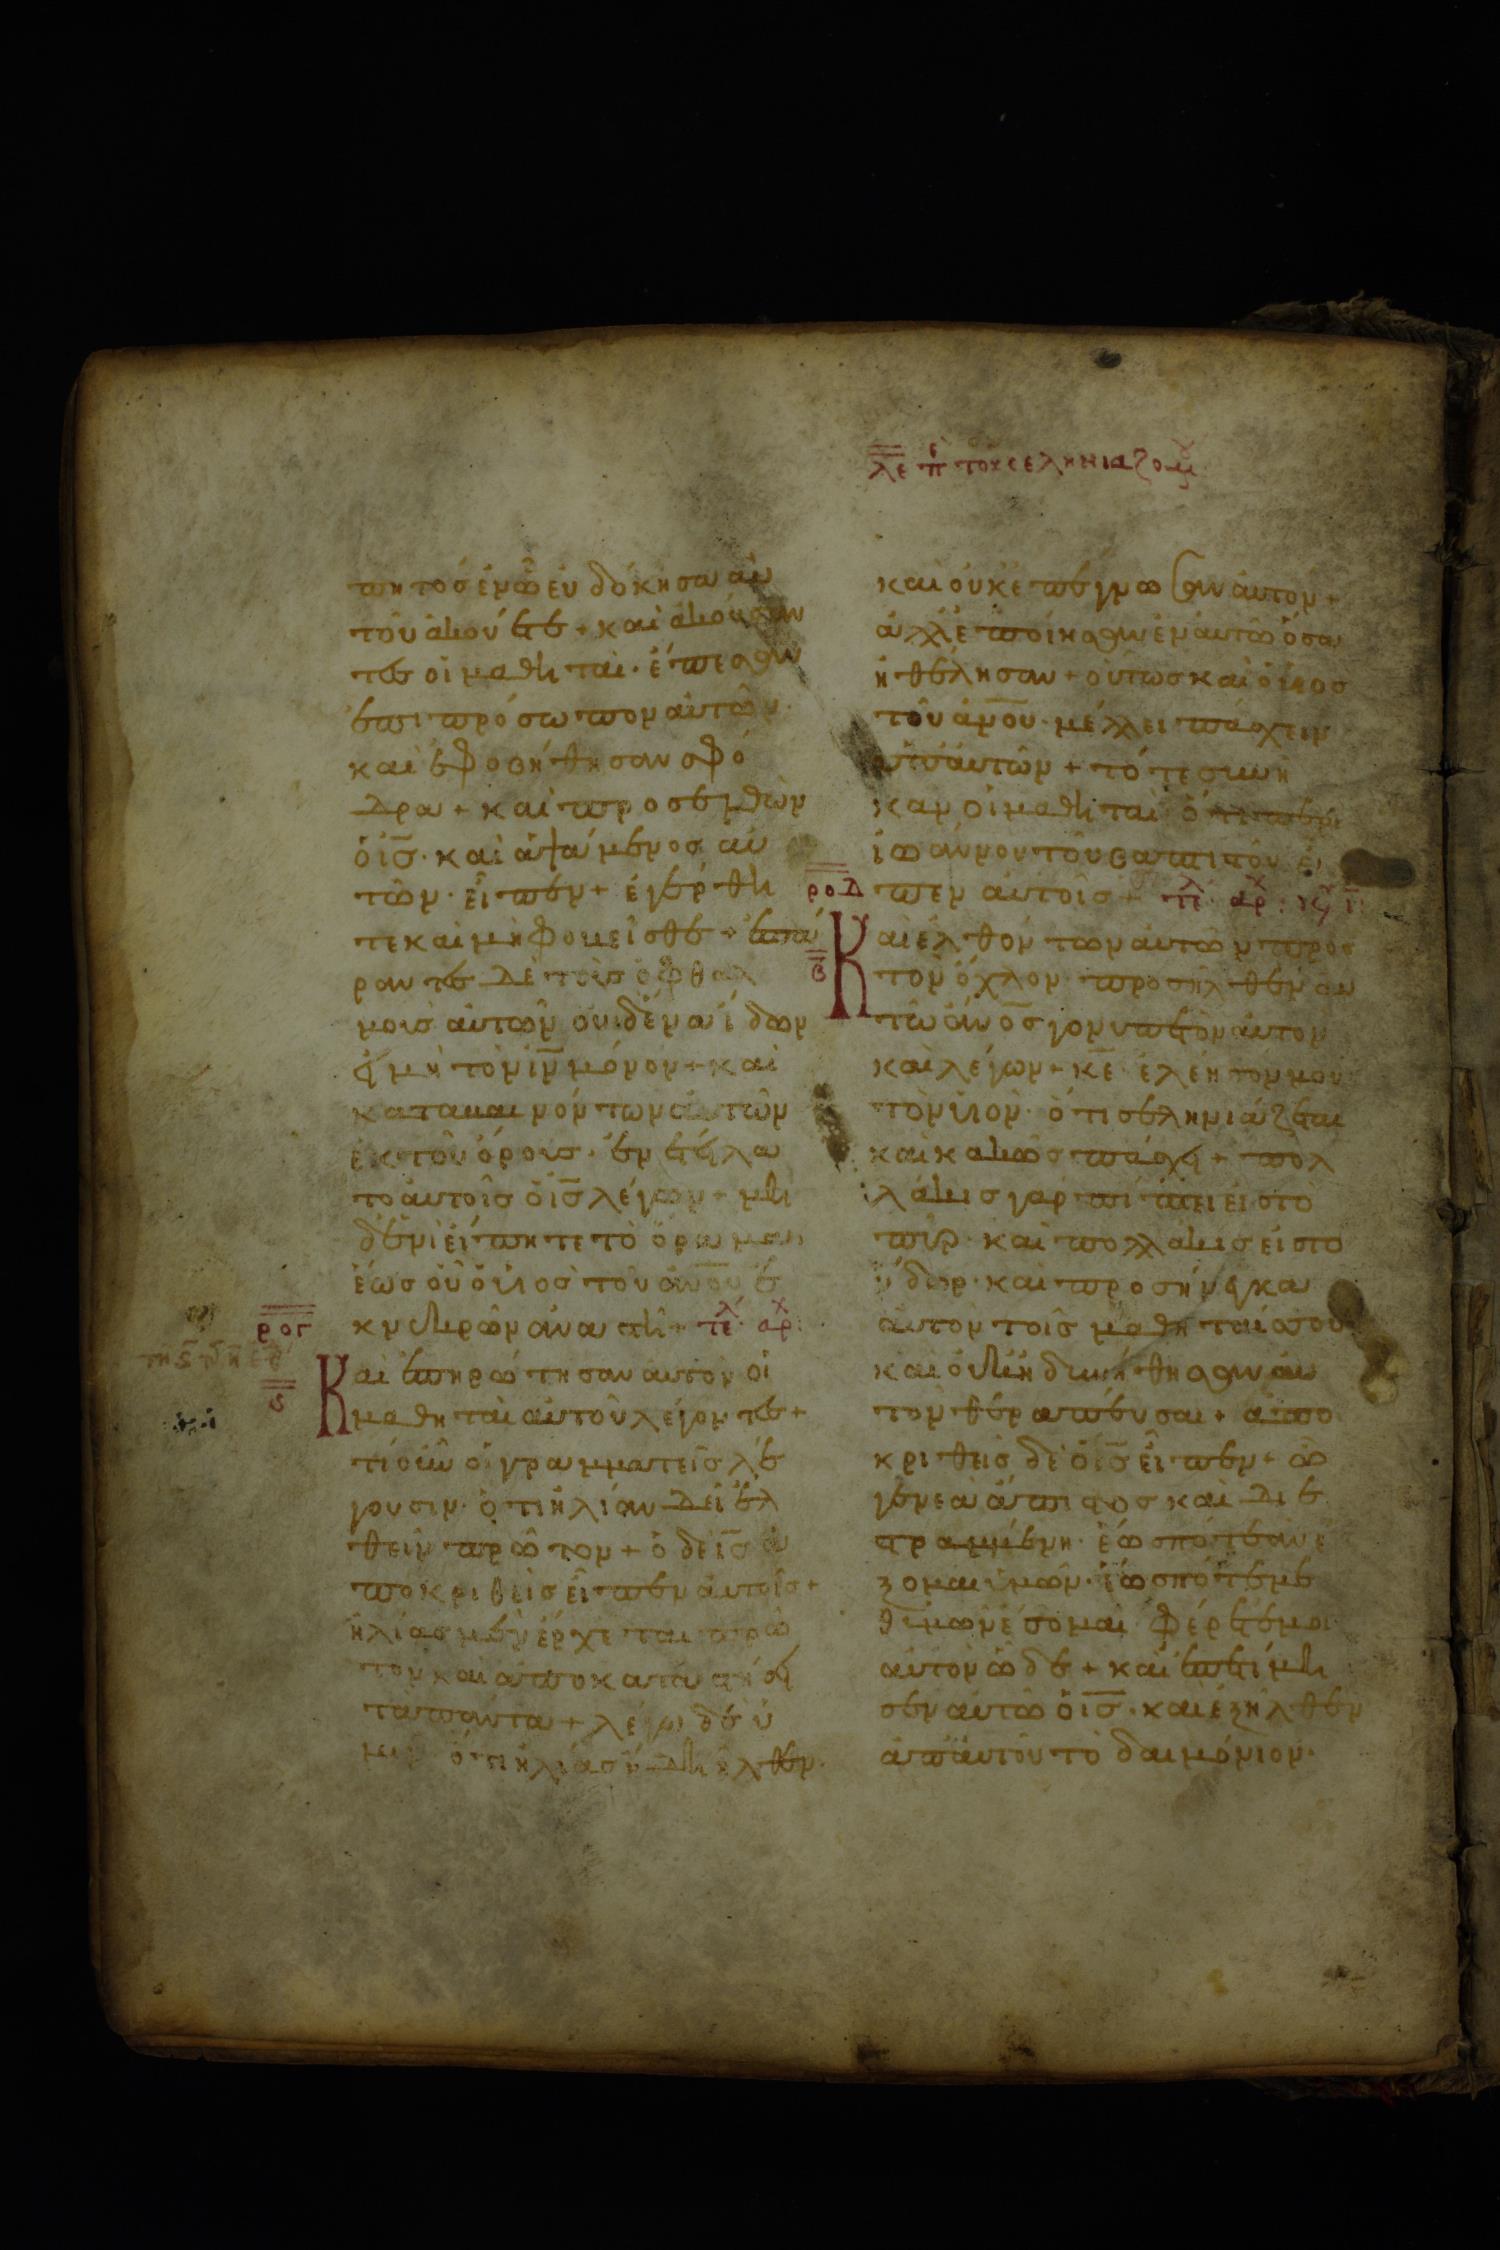 λε πε του σεληνιαζομ
πητὸς ἐν ὧ εὐδόκησα αὐ
τοῦ ἀκούετε + καὶ ἀκούσαν
τες οἱ μαθηταὶ · ἔπεσαν
ἐπι πρόσωπον αὐτῶν ·
καὶ ἐφοβήθησαν σφό
δρα + καὶ προσελθὼν
ὁ ις · καὶ ἁψάμενος αὐ
τῶν · εἶπεν + ἐγέρθη
τε καὶ μὴ φοβεῖσθε + ἐπά
ραντες δὲ τοὺς ὀφθαλ
μοὺς αὐτῶν οὐδένα ἴδων
εἰ μὴ τὸν ιν μόνον + καὶ
καταβαινόντων αὐτῶν
ἐκ τοῦ ὄρους · ἐνετείλα
το αὐτοῖς ὁ ις λέγων + μη
δενὶ εἴπητε τὸ ὅραμα
ἕως οὗ ὁ υἱος τοῦ ανου ἐ
κ νεκρῶν ἀναστῆ + τελ αρχ
ρογ
Καὶ ἐπηρώτησαν αὐτὸν οἱ
ς
μαθηταὶ αὐτοῦ λέγοντες +
τί οὖν οἱ γραμματεῖς λέ
γουσιν · ὅτι ἡλίαν δεῖ ἐλ
θεῖν πρῶτον + ὁ δὲ ις ἀ
ποκριθεὶς εἶπεν αὐτοῖς +
ἡλίας μὲν ἔρχεται πρῶ
τον καὶ ἀποκαταστήσει
τα πάντα + λέγω δὲ ὑ
μιν ὅτι ἡλίας ἤδη ἦλθεν ·
καὶ οὐκ ἐπέγνωσαν αὐτον +
ἀλλ ἐποίησαν ἐν αὐτῶ ὅσα
ἠθέλησαν + οὕτως καὶ ὁ υἱος
τοῦ ανου · μέλλει πάσχειν
ὑπ αὐτῶν + τότε συνῆ
καν οἱ μαθηταὶ ὅτι περὶ
ἰωάννου τοῦ βαπτιστοῦ εἶ
ροδ
πεν αὐτοῖς + τελ αρχ
Καὶ ἐλθόντων αὐτῶν πρὸς
β
τὸν ὄχλον · προσῆλθεν αυ
τῶ ανος γονυπετὸν αὐτον
καὶ λέγων + κε ἐλέησον μου
τὸν υἱον · ὅτι σεληνιάζεται
καὶ κακῶς πάσχει + πολ
λάκις γαρ πίπτει εἰς τὸ
πῦρ · καὶ πολλάκις εἰς το
ὕδωρ · καὶ προσήνεγκα
αὐτον τοῖς μαθηταῖς σου
καὶ οὐκ ἠδυνήθησαν αὐ
τὸν θεραπεύσαι + ἀπο
κριθεὶς δὲ ὁ ις εἶπεν + ὦ
γενεὰ ἄπιστος καὶ διε
στραμμένη · ἕως πότε ἀνέ
ξομαι ὑμῶν · ἕως πότε με
θ ὑμῶν ἔσομαι · φέρετέ μοι
αὐτὸν ὧδε + καὶ ἐπετίμη
σεν αὐτῶ ὁ ις · καὶ ἐξῆλθεν
ἀπ αὐτοῦ τὸ δαιμόνιον ·